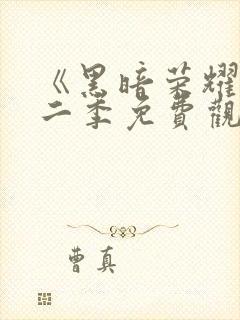 《黑暗荣耀
二季免費觀
曹真